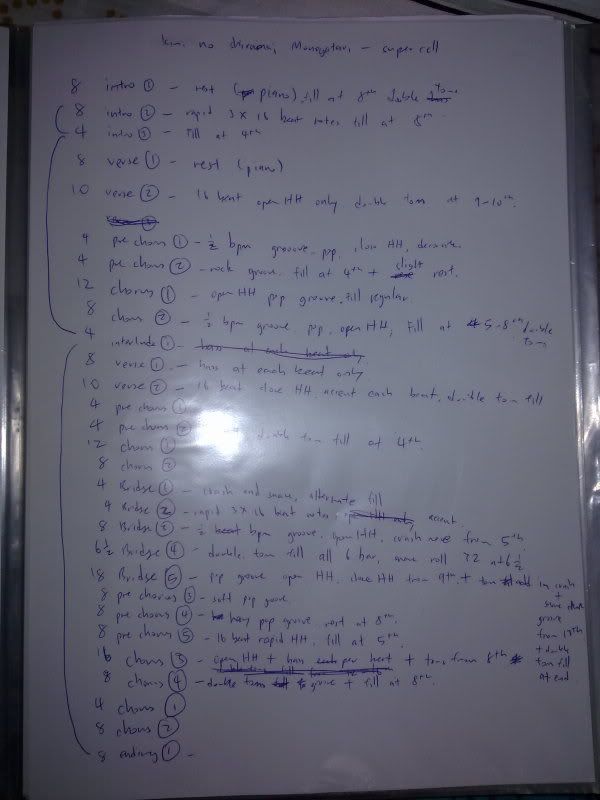 kimi no shiranai Monogatari - supercell
8 intro ① - rest (piano), fill at 8th double toms
8 intro ② - rapid 3 x 16 beat notes fill at 8th
4 intro ③ - fill at 4th
8 verse ① - rest (piano)
10 verse ② - 16 beat open HH only double toms at 9-10th.
4 pre chorus ① - ½ bpm groove, pop, close HH,
4 pre chorus ② - rock groove, fill at 4th + slight rest.
12 chorus ① - open HH pop groove, fill regular.
8 chorus ② - ½ bpm groove, pop, open HH, Fill at 5-8th double toms
4 interlude ① - bass at each beat only
8 verse ① - bass at each beat only
10 verse ② - 16 beat close HH, accent each beat, double tom fill
4 pre chorus ①
4 pre chorus ② double tom fill at 4th.
12 chorus ①
8 chorus ②
4 Bridge ① - crash and snare, alternate fill
4 Bridge ② - rapid 3x16 beat notes, open HH only, accent.
8 Bridge ③ - ½ beat bpm groove, open HH, crash more from 5th
6½ Bridge ④ - double tom fill all 6 bar, snare roll 32 at 6½
18 Bridge ⑤ - pop groove open HH, close HH from 9th, + tom crash + snare groove from 17th + double tom fill at end
8 pre chorus ③ - soft pop groove
8 pre chorus ④ - heavy pop groove rest at 8th.
8 pre chorus ⑤ - 16 beat rapid HH, fill at 5th
16 chorus ③ - open HH + bass each per beat + toms from 8th
8 chorus ④ - double toms to groove + fill at 8th.
4 chorus ①
8 chorus ②
8 ending ① -